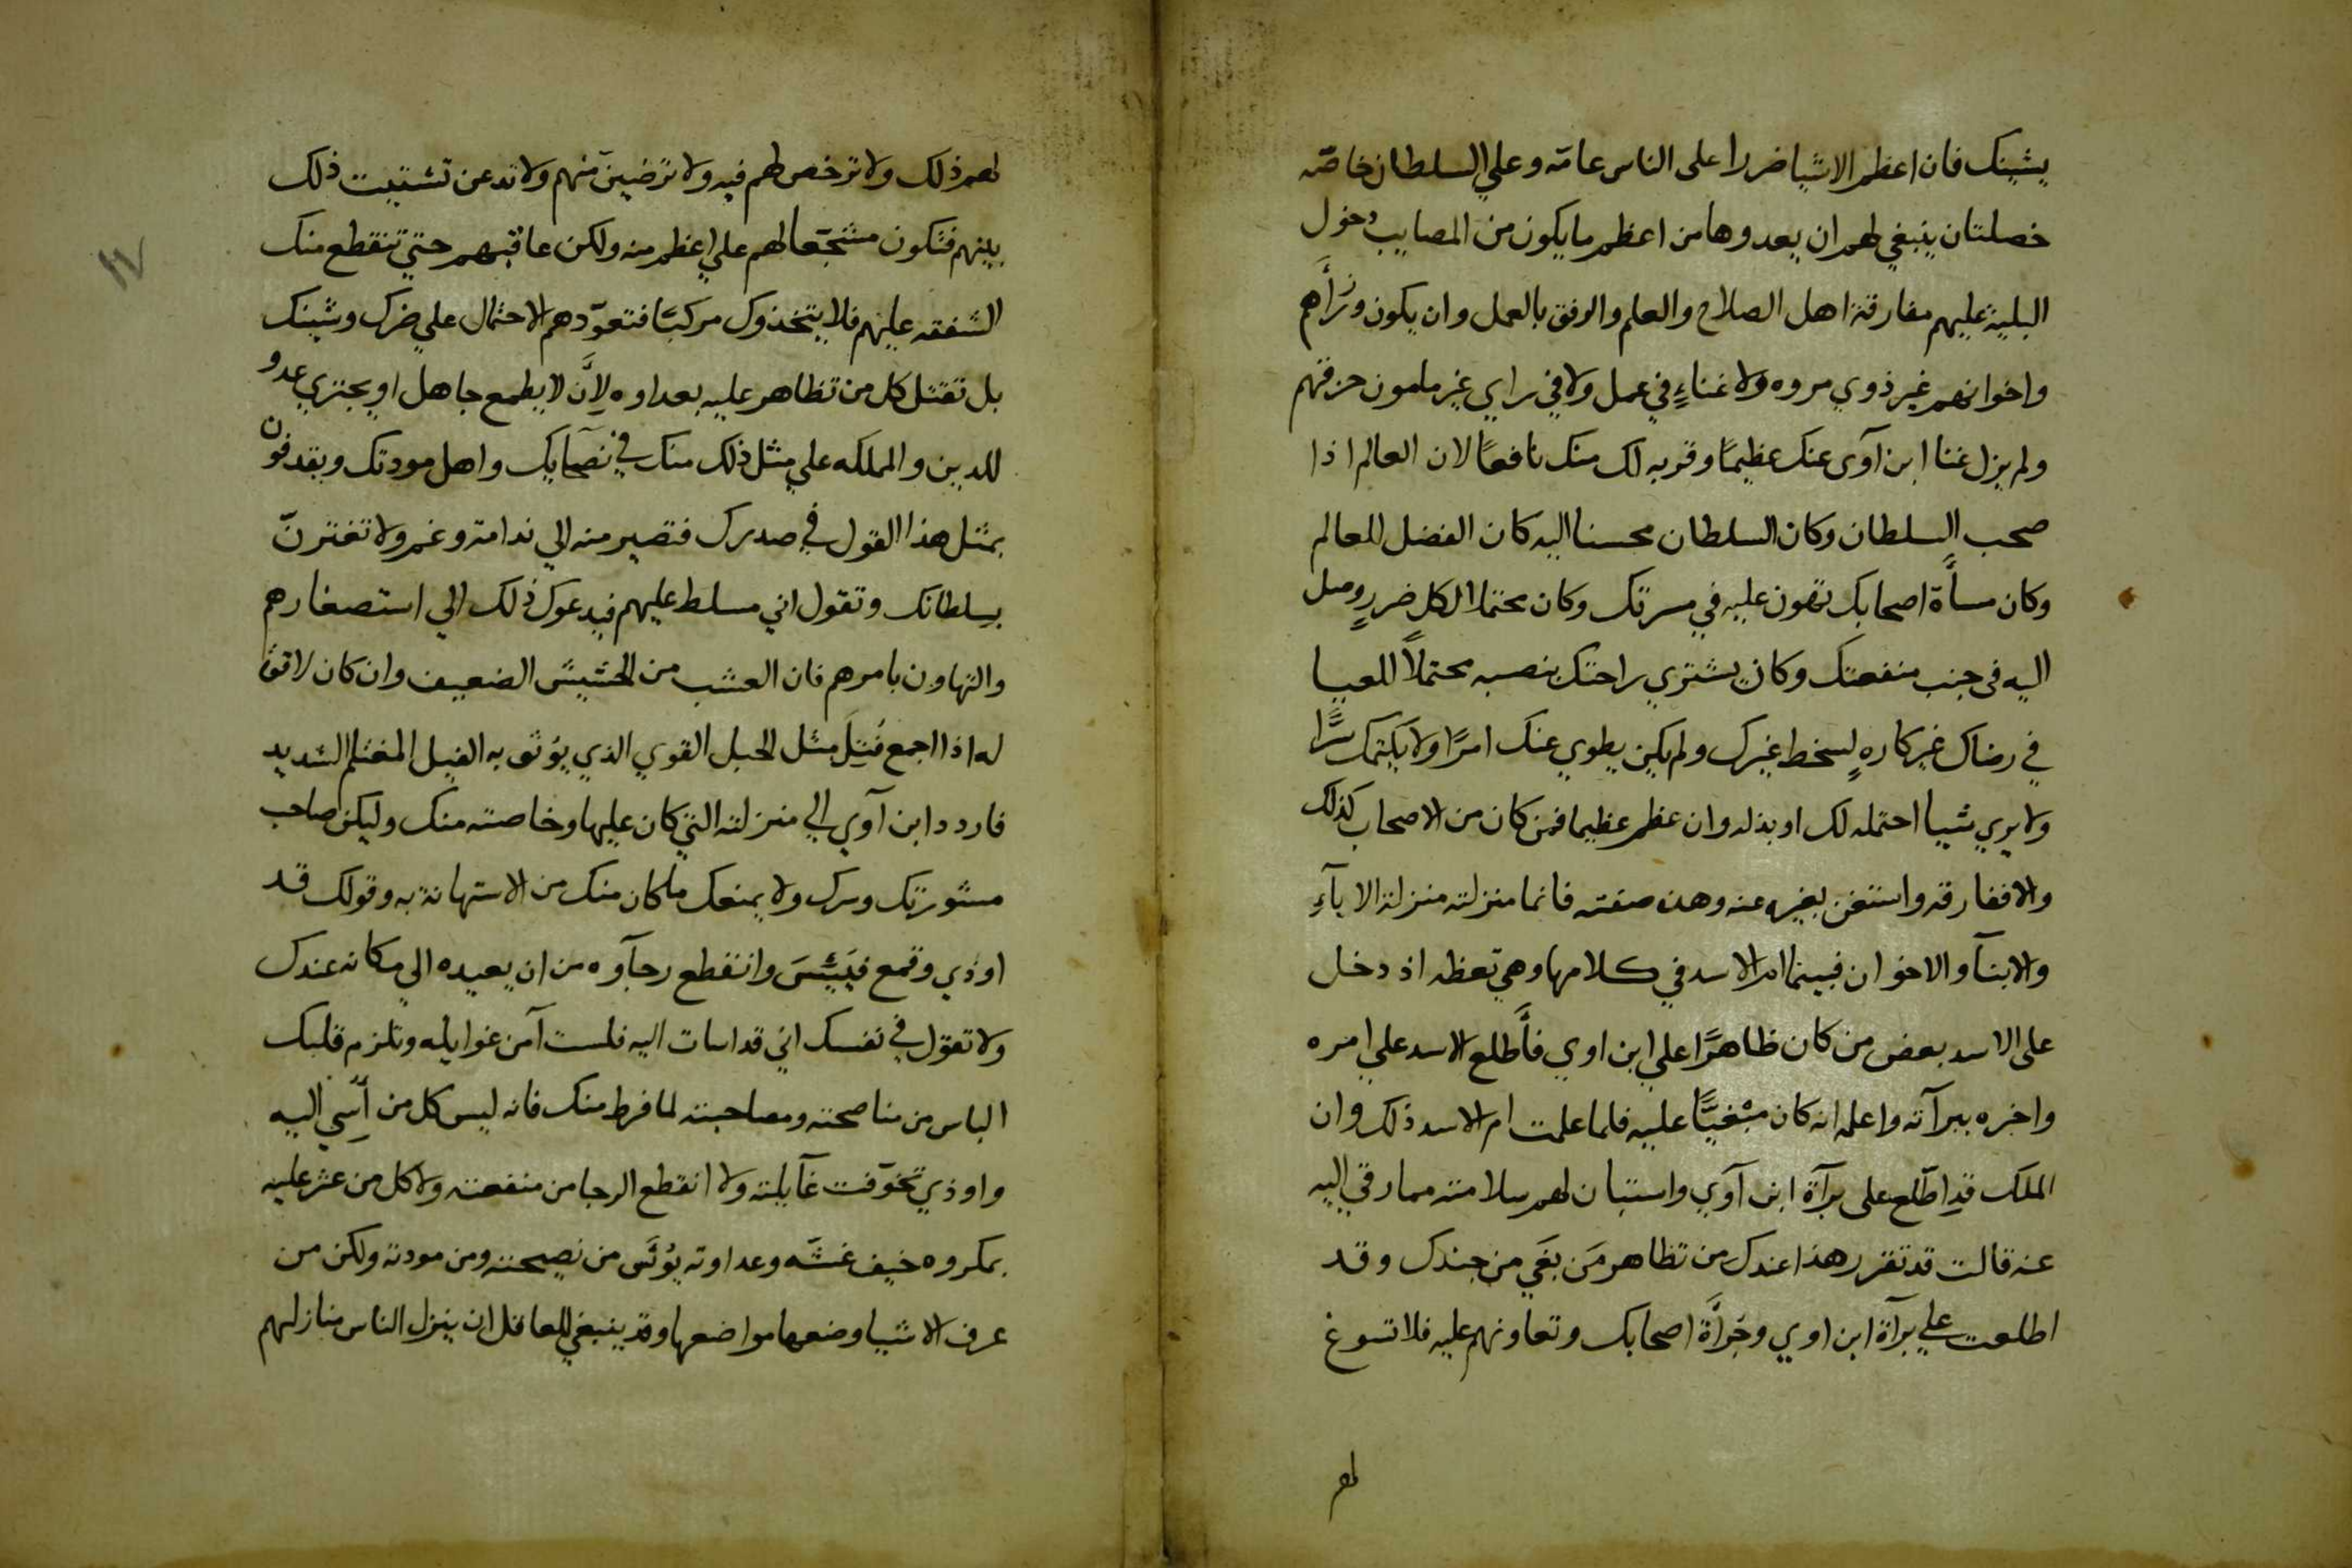 يشينك فان اعظم الاشيا ضررا على الناس عامّه وعلي السلطان خاصّه
خصلتان ينبغي لهم ان يعدوها من اعظم ما يكون من المصايب دخول
البلية عليهم مفارقة اهل الصلاح والعلم والرفق بالعمل وان يكون وزرأهم
واخوانهم غير ذوي مروه ولا غناءٍ في عمل ولا في راي غير ملمون حزقهم
ولم يزل غنا ابن آوى عنك عظيمًا وقربه لك منك نافعًا لان العالم اذا
صحب السلطان وكان السلطان محسنا اليه كان الفضل للعالم
وكان مسأة اصحابك تهون عليه في مسرتك وكان محتملا لكل ضررٍ وصل
اليه فى جنب منفعتك وكان يشتري راحتك بنصبه محتملاً للعيبا
في رضاك غير كارهٍ لسخط غيرك ولم يكن يطوي عنك امرًا ولا يكتمك سرًّا
ولا يري شيبا احتمله لك او بذله وان عظم عظيما فمن كان من الاصحاب كذلك
والا ففارقه واستغن بغيره عنه وهذه صفته فانما منزلته منزلة الابآءِ
والابنآ والاخوان فبينما ام الاسد في كلامها وهي تعظه اذ دخل
على الاسد بعض من كان ظاهرًا علي ابن اوي فأطلع الاسد علي امره
واخبره ببرآته واعلمه انه كان مبْغيًّا عليه فلما علمت ام الاسد ذلك وان
الملك قد اطّلع على برآة ابن آوي واستبان لهم سلامته مما رقي اليه
عنه قالت قد تقرر هذا عندك من تظاهر مَن بَغَي من جندك وقد
اطلعت علي برآة ابن اوي وجرأة اصحابك وتعاونهم عليه فلا تسوغ
لهم
١٧
لهم ذلك ولا ترخص لهم فيه ولا ترضينّ منهم ولا تدعن تشتيت ذلك
بينهم فتكون مشجّعا لهم علي اعظم منه ولكن عاقبهم حتي تنقطع منك
الشفقه عليهم فلا يتخذوك مركبًا فتعوّدهم الاحتمال علي ضرك وشينك
بل تقتل كل من تظاهر عليه بعداوه لِأَن لا يطمع جاهل او يجتري عدو
للدين والمملكه علي مثل ذلك منك في نصحآيك واهل مودتك ويقدفون
بمثل هذا القول في صدرك فتصير منه الي ندامة وغم ولا تغترنّ
بسلطانك وتقول اني مسلط عليهم فيدعوك ذلك الي استصغارهم
والتهاون بامرهم فان العشب من الحشيش الضعيف وان كان لا قوة
له اذا اجمع فُتِلَ مثل الحبل القوي الذي يؤثق به الفيل المغتلم الشديد
فاردد ابن آوي الي منزلته التي كان عليها وخاصته منك وليكن صاحب
مشورتك وسرك ولا يمنعك ما كان منك من الاستهانة به وقولك قد
اوذي وقمع فيَيئسَ وانقطع رجآوه من ان يعيده الي مكانه عندك
ولا تقوّل في نفسك اني قد اسات اليه فلست آمن غوايله وتلزم قلبك
الياس من مناصحته ومصاحبته لما فرط منك فانه ليس كل من أُسِي اليه
واوذي تخوّفت غآيلته ولا انقطع الرجا من منفعته ولا كل من عثر عليه
بمكروه خيف غشّه وعداوته يؤئَس من نصيحته ومن مودته ولكن من
عرف الاشيا وضعها مواضعها وقد ينبغي للعاقل ان ينزل الناس منازلهم